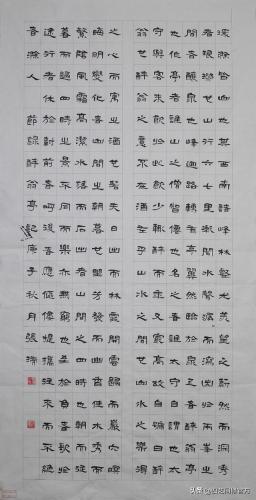 環滁皆山也其西南諸峰林壑尤美望之蔚然而深秀
者琅琊也山行六七里漸聞水聲潺潺而瀉出於兩峰之
間者釀泉也峰回路轉有亭翼然臨於泉上者醉翁亭
也作亭者誰山之僧智僊也名之者誰太守自謂也太
守與客來飲於此飲少輒醉而年又最高故自號曰醉
翁也醉翁之意不在酒在乎山水之間也山水之樂得
之心而寓之酒也若夫日出而林霏開雲歸而巖穴暝
晦明變化者山間之朝暮也野芳發而幽香佳木秀而
繁陰風霜高潔水落而石出者山間之四時也朝而往
暮而歸四時之景不同而樂亦無窮也至於負者歌於
途行者休於樹前者呼後者應傴僂提攜往來而不絕
者滁人 節錄醉翁亭記庚子秋月張